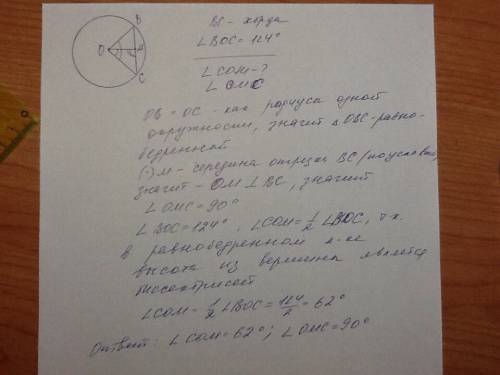 B
O
M
C
BC - хорда
∠BOC = 124°
∠COM - ?
∠OMC
OB = OC - как радиусы одной
окружности, значит △OBC - равно-
бедренный
(·) M - середина отрезка BC (по условию),
значит - OM ⊥ BC, значит
∠OMC = 90°
∠BOC = 124°, ∠COM = 1/2 ∠BOC, т.к.
в равнобедренном
высота из вершины является
биссектрисой
∠COM = 1/2 ∠BOC = 124/2 = 62°
Ответ: ∠COM = 62°; ∠OMC = 90°